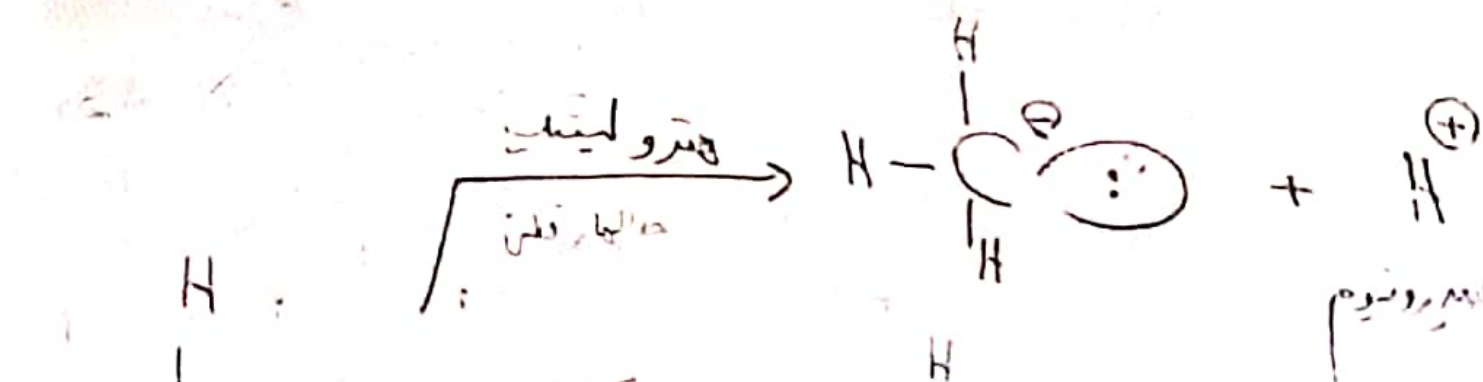 H
هترولیتیک
⊖ ⊕
H — C : + H
H
H
H